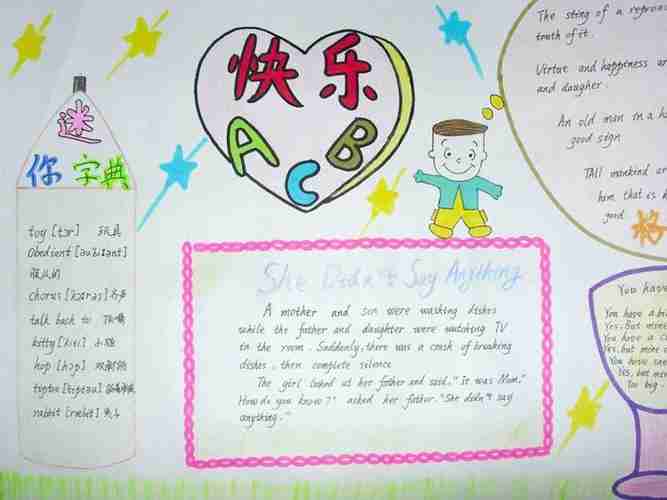 快乐
A
B
C
迷
你字典
toy [tɔr] 玩具
Obedient
服从的
chorus 合声
talk back to 顶嘴
kitty [kiti] 小猫
hop [hɔp]
tiptoe [tiptəu]
rabbit [ræbit] 兔子
She Didn't Say Anything
A mother and son were washing dishes
while the father and daughter were watching TV
in the room. Suddenly, there was a crash of breaking
dishes, then complete silence
The girl looked us her father and said, "It was Mom."
How do you know?" asked her father. "She didn't say
anything."
The sting of a repro
truth of it.
Virtue and happiness ar
and daugher.
An old man in a h
good sign
TAll mankind ar
him that is
good.
格
You have
You have a bi
Yes. But mine
You have a c
Yes, but mine
You have
Yes, but mi
Too big